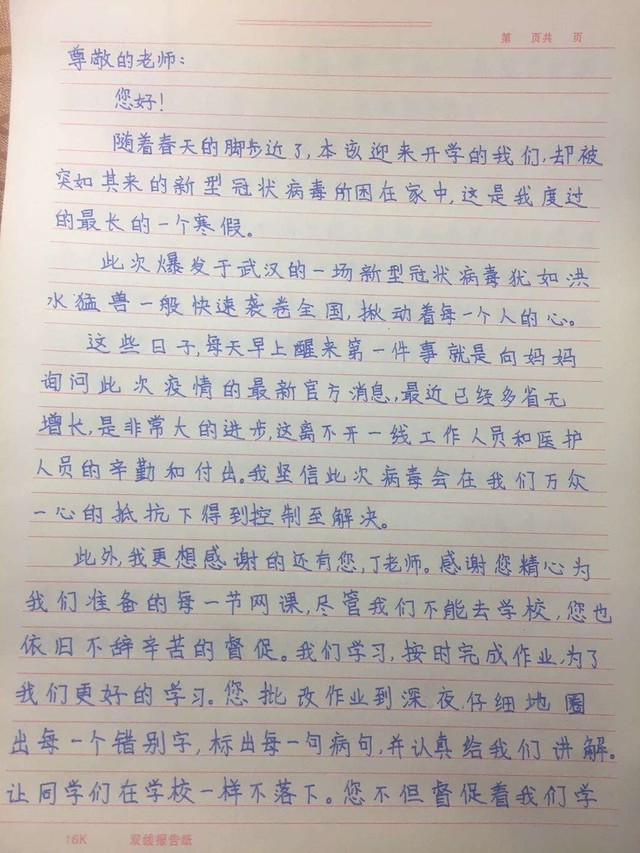 第 页共 页
尊敬的老师:
您好!
随着春天的脚步近了,本该迎来开学的我们,却被
突如其来的新型冠状病毒所困在家中,这是我度过
的最长的一个寒假。
此次爆发于武汉的一场新型冠状病毒犹如洪
水猛兽一般快速袭卷全国,揪动着每一个人的心。
这些日子,每天早上醒来第一件事就是向妈妈
询问此次疫情的最新官方消息,最近已经多省无
增长,是非常大的进步,这离不开一线工作人员和医护
人员的辛勤和付出。我坚信此次病毒会在我们万众
一心的抵抗下得到控制至解决。
此外,我更想感谢的还有您,丁老师。感谢您精心为
我们准备的每一节网课,尽管我们不能去学校,您也
依旧不辞辛苦的督促。我们学习,按时完成作业,为了
我们更好的学习。您批改作业到深夜,仔细地圈
出每一个错别字,标出每一句病句,并认真给我们讲解。
让同学们在学校一样不落下。您不但督促着我们学
16K 双线报告纸